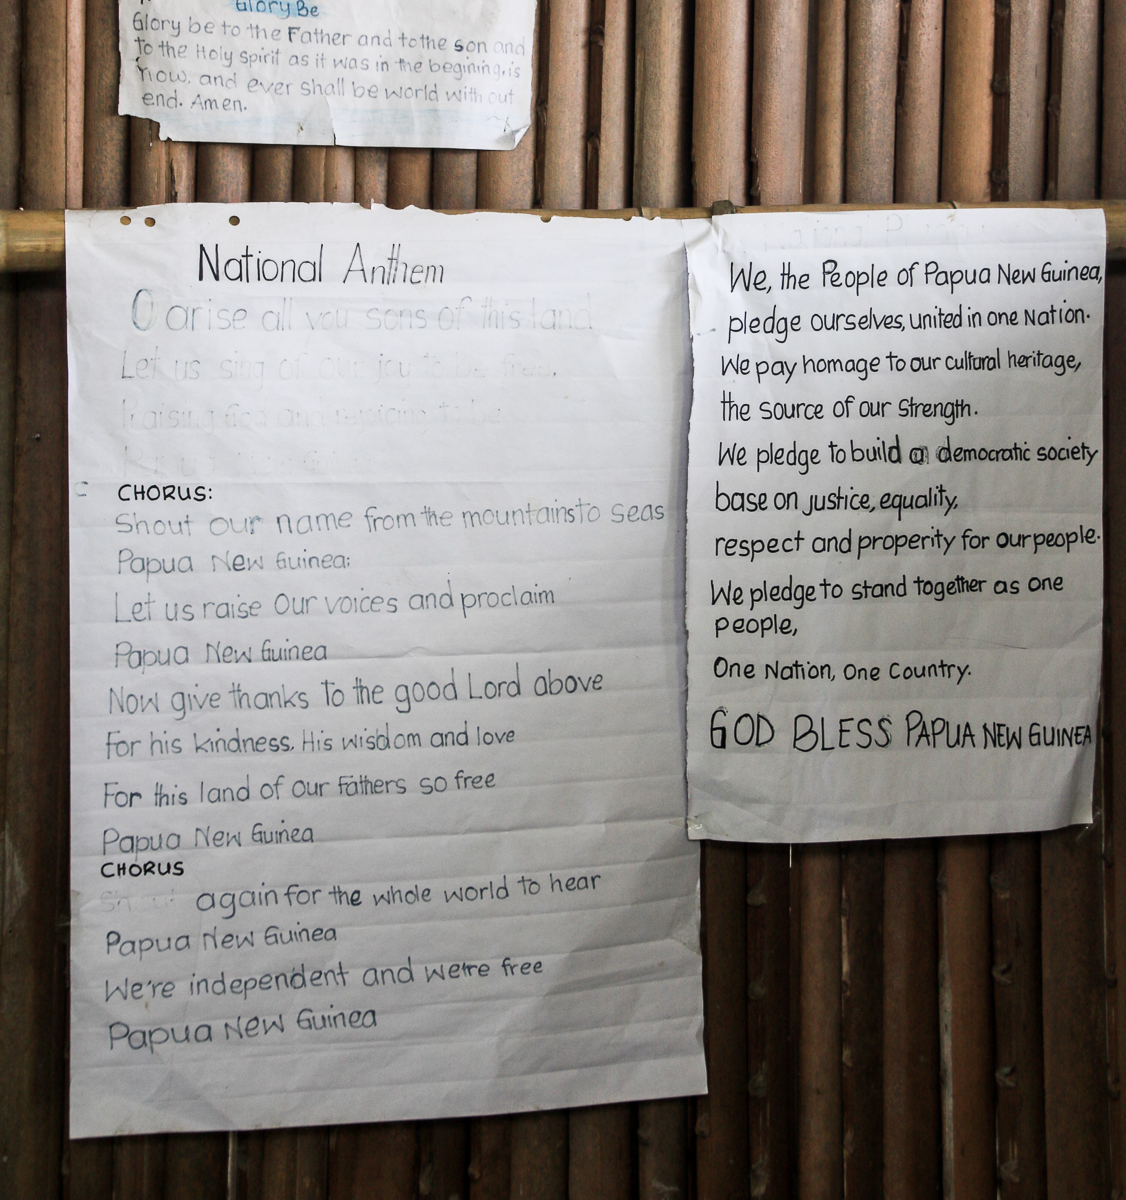 Glory Be
Glory be to the Father and to the son and
to the Holy Spirit as it was in the begining, is
now, and ever shall be world with out
end. Amen.
National Anthem
O arise all you sons of this land
Let us sing of our joy to be free,
Praising God and rejoicing to be
CHORUS:
Shout our name from the mountains to seas
Papua New Guinea:
Let us raise Our voices and proclaim
Papua New Guinea
Now give thanks to the good Lord above
For his kindness, His wisdom and love
For this land of our Fathers so free
Papua New Guinea
CHORUS
Shout again for the whole world to hear
Papua New Guinea
We're independent and we're free
Papua New Guinea
We, the People of Papua New Guinea,
pledge ourselves, united in one Nation.
We pay homage to our cultural heritage,
the source of our Strength.
We pledge to build a democratic society
base on justice, equality,
respect and properity for our people.
We pledge to stand together as one
people,
One Nation, One Country.
GOD BLESS PAPUA NEW GUINEA